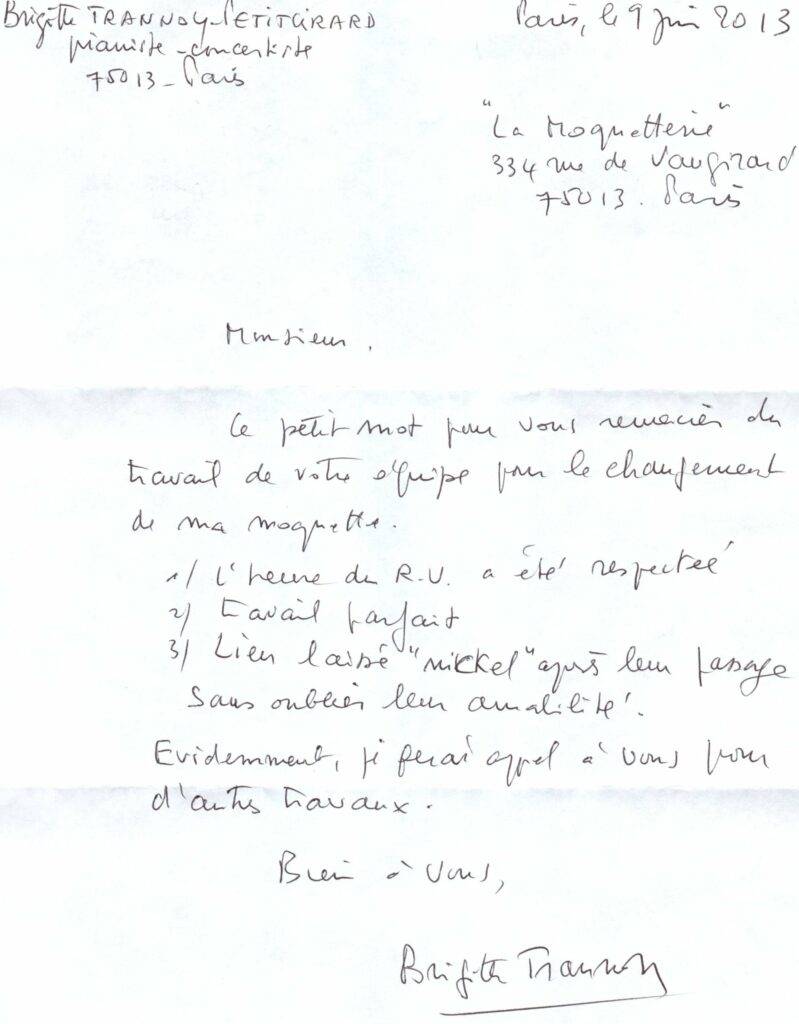 Brigitte TRANNOY-PETITGIRARD
pianiste-concertiste
75013-Paris
Paris, le 9 Juin 2013
"La Moquetterie"
334 rue de Vaugirard
75013. Paris
Monsieur,
Ce petit mot pour vous remercier du
travail de votre équipe pour le changement
de ma moquette.
1/ L'heure du R.V. a été respecteé
2/ travail parfait
3/ Lieu laissé "nickel" après leur passage
sans oublier leur amabilité.
Evidemment, je ferai appel à vous pour
d'autres travaux.
Bien à vous,
Brigitte Trannoy